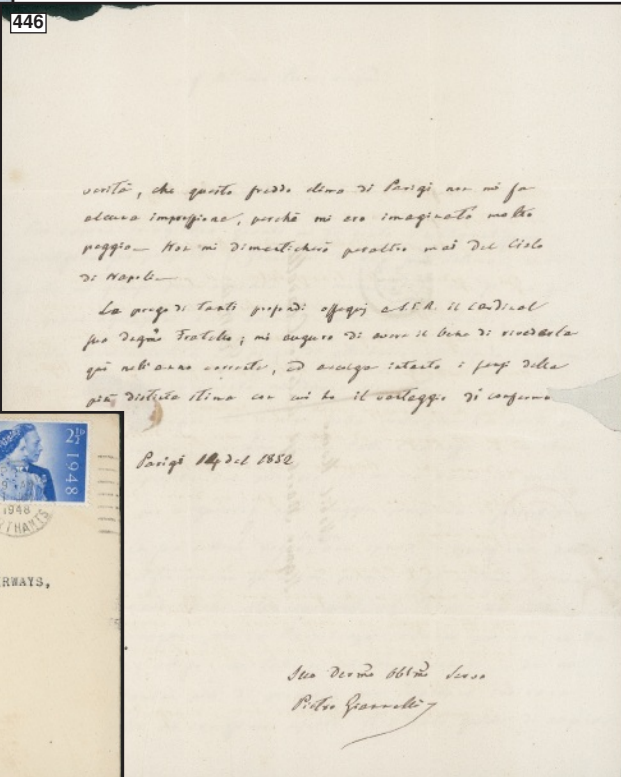 446
verità, che questo freddo clima di Parigi non mi fa
alcuna impressione, perchè mi ero imaginato molto
peggio— Non mi dimenticherò peraltro mai del Cielo
di Napoli—
La prego di tanti profondi ossequj a S.E.R. il Cardinal
suo degmo Fratello; mi auguro di avere il bene di rivederla
quì nell'anno corrente, ed accolga intanto i sensi della
più distinta stima con cui ho il vantaggio di confermo
Parigi 14 del 1852
Suo Devmo Obblmo Servo
Pietro Giannelli
2½D
1948
1948
THANTS
RWAYS,